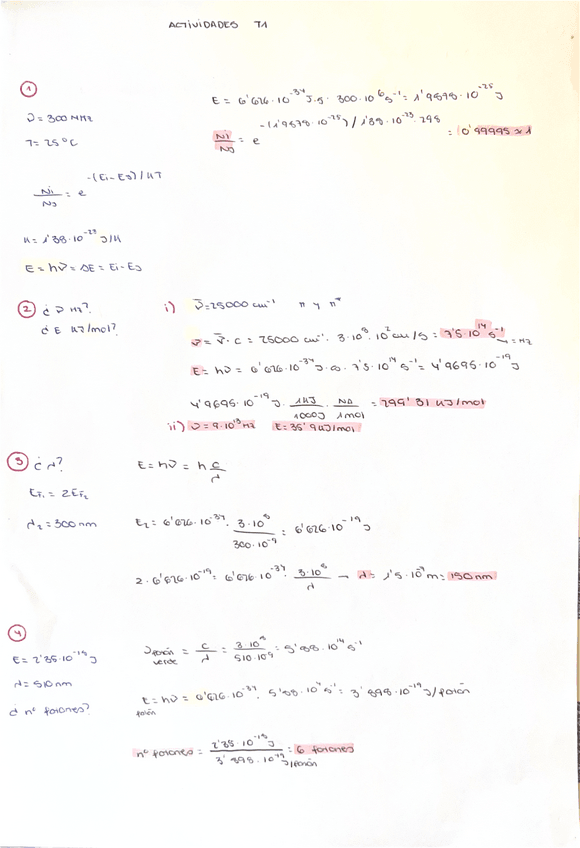 ACTIVIDADES T1
①
ν = 300 MHz
T = 25ºC
Ni/Nj = e^-(Ei-Ej)/kT
k = 1'38·10^-23 J/K
E = hν = ΔE = Ei-Ej
E = 6'626·10^-34 J·s · 300·10^6 s^-1 = 1'9878·10^-25 J
Ni/Nj = e^-(1'9878·10^-25)/1'38·10^-23·298 = 0'99995 ≈ 1
② ¿ ν Hz?
¿ E kJ/mol?
i) ν̄ = 25000 cm^-1 π y π*
ν = ν̄·c = 25000 cm^-1 · 3·10^8·10^2 cm/s = 7'5·10^14 s^-1 → = Hz
E = hν = 6'626·10^-34 J·s · 7'5·10^14 s^-1 = 4'9695·10^-19 J
4'9695·10^-19 J · 1kJ/1000J · NA/1mol = 299'31 kJ/mol
ii) ν = 9·10^13 Hz E = 35'9 kJ/mol
③ ¿ λ?
Ef1 = 2Ef2
λ2 = 300 nm
E = hν = h c/λ
E2 = 6'626·10^-34 · 3·10^8/300·10^-9 = 6'626·10^-19 J
2·6'626·10^-19 = 6'626·10^-34 · 3·10^8/λ → λ = 1'5·10^-7 m = 150 nm
④
E = 2'35·10^-18 J
λ = 510 nm
¿ nº fotones?
ν fotón verde = c/λ = 3·10^8/510·10^-9 = 5'88·10^14 s^-1
E fotón = hν = 6'626·10^-34 · 5'88·10^14 s^-1 = 3'898·10^-19 J/fotón
nº fotones = 2'35·10^-18 J / 3'898·10^-19 J/fotón = 6 fotones